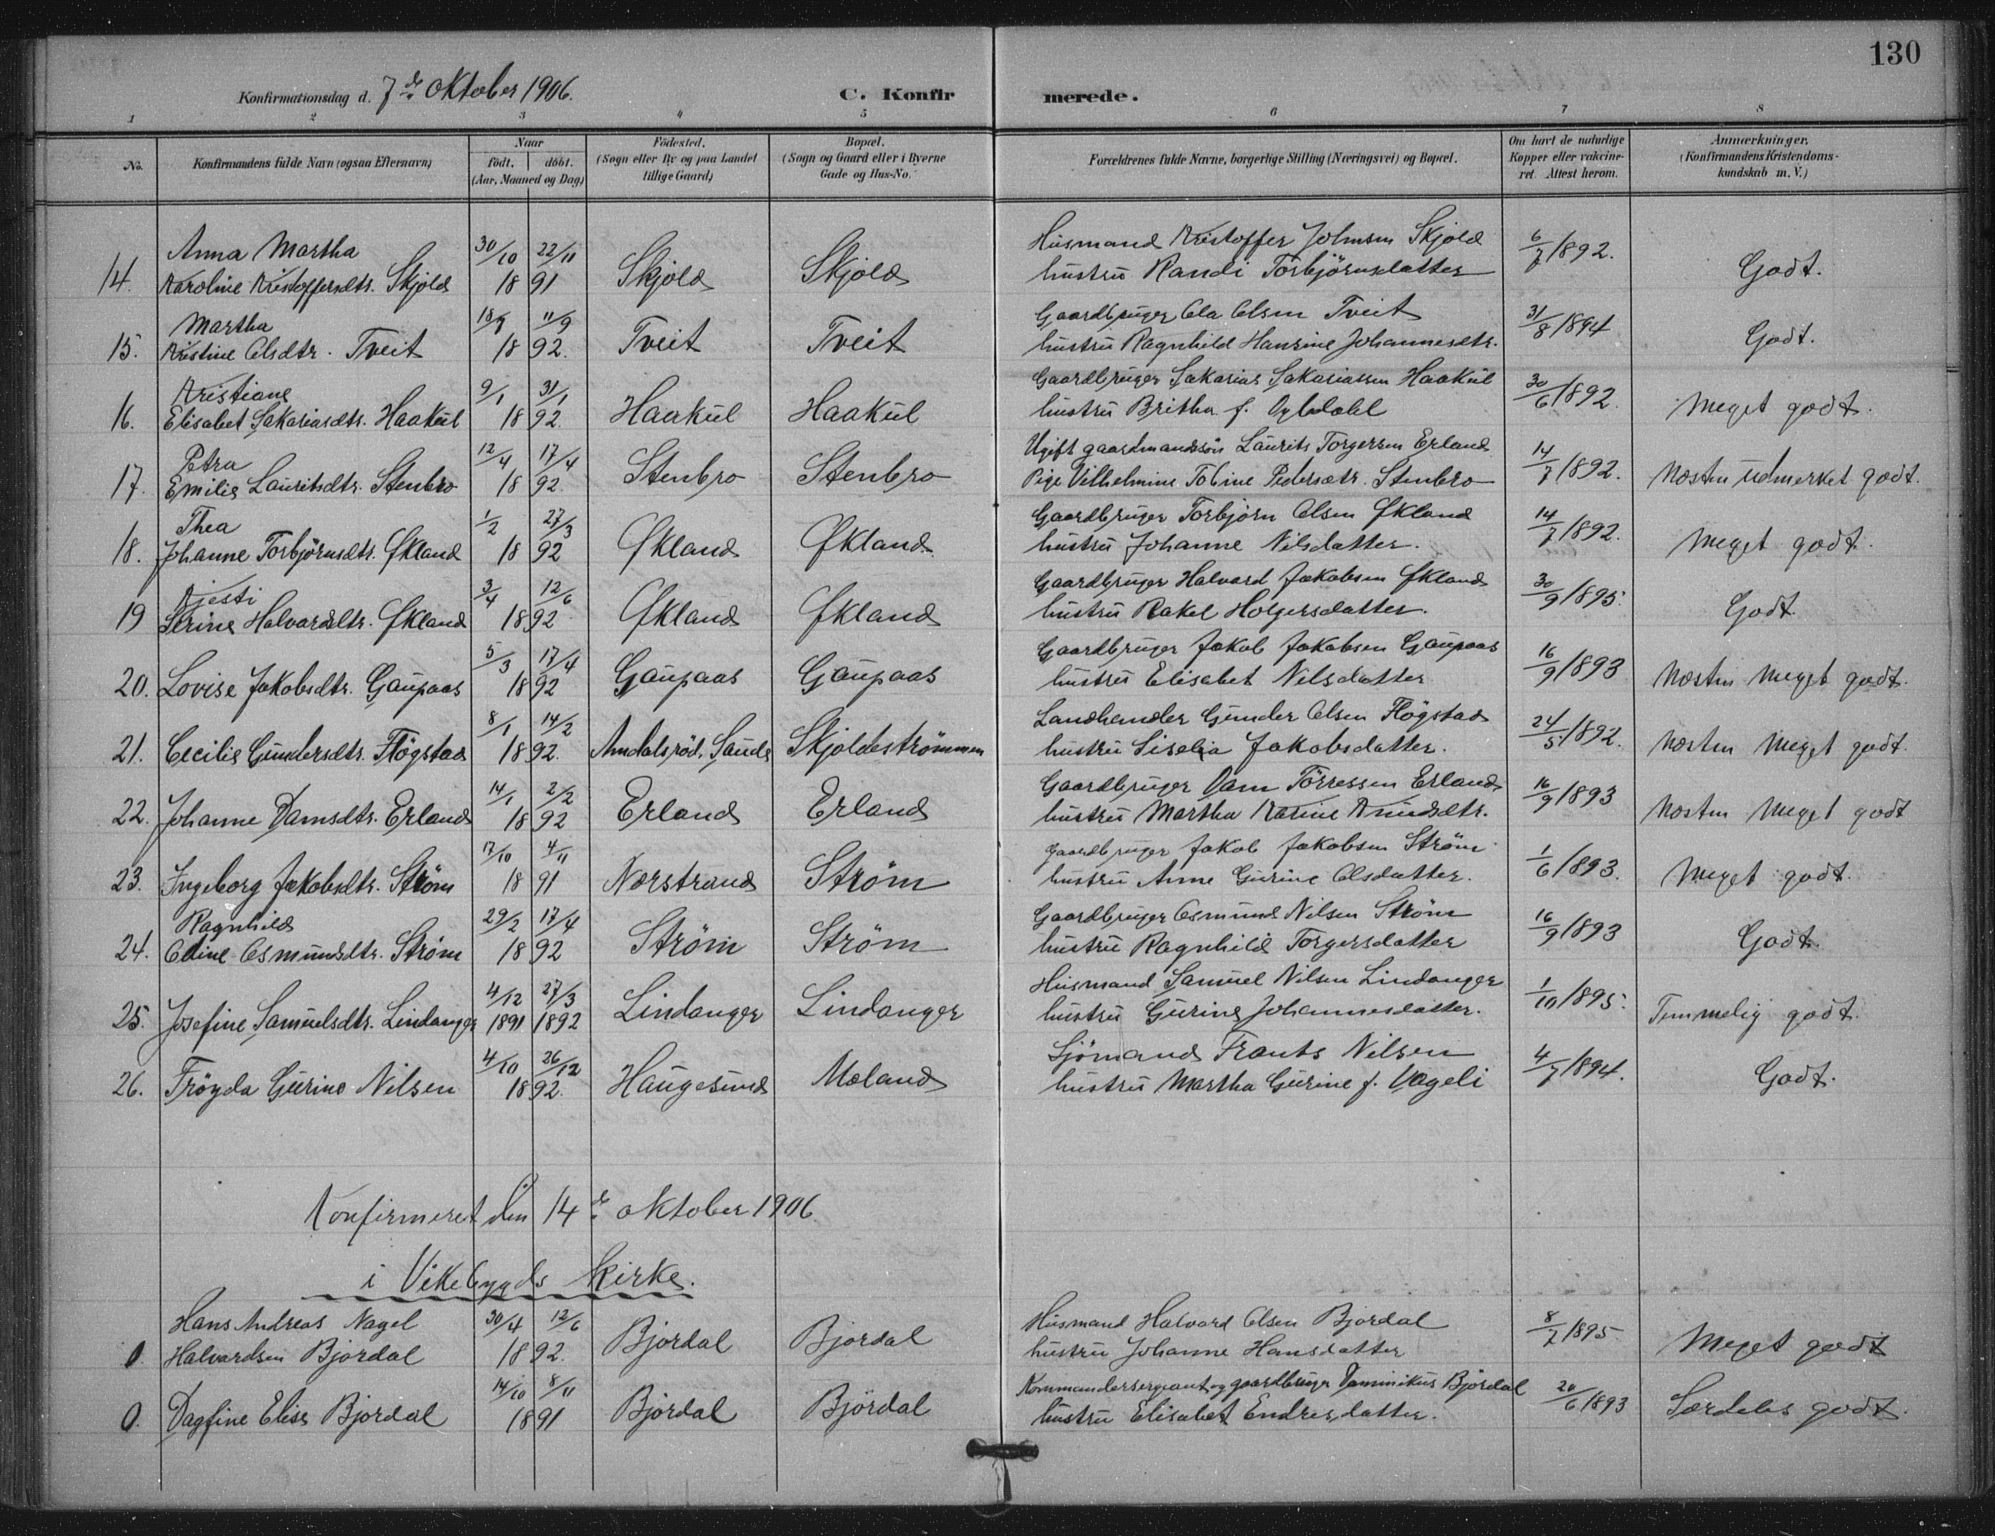 130
Konfirmationsdag d. 7de Oktober 1906.
C. Konfirmerede.
1 2 3 4 5 6 7 8
No.
Konfirmandens fulde Navn (ogsaa Efternavn)
Naar
födt. döbt.
(Aar, Maaned og Dag)
Födested.
(Sogn eller By og paa Landet
tillige Gaard)
Bopæl.
(Sogn og Gaard eller i Byerne
Gade og Hus-No.
Forældrenes fulde Navne, borgerlige Stilling (Næringsvei) og Bopæl.
Om havt de naturlige
Kopper eller vakcine-
ret. Attest herom.
Anmærkninger.
(Konfirmandens Kristendoms-
kundskab m. V.)
Anna Martha 30/10 22/11 Husmand Kristoffer Johnsen Skjold 6/7 1892.
14. Karoline Kristoffersdtr. Skjold 1891 Skjold Skjold hustru Randi Torbjörnsdatter Godt.
Martha 18/7 11/9 Gaardbruger Ola Olsen Tveit 31/8 1894
15. Kristine Olsdtr. Tveit 1892. Tveit Tveit hustru Ragnhild Hansine Johannesdtr. Godt.
Kristiane 9/1 31/1 Gaardbruger Sakarias Sakariassen Haakul 30/6 1892.
16. Elisabet Sakariasdtr. Haakul 1892. Haakul Haakul hustru Britha f. Meget godt.
Petra 12/4 17/4 Ugift gaardmandssön Laurits Torgersen Erland 14/7 1892.
17. Emilie Lauritsdtr. Stenbro 1892. Stenbro Stenbro Pige Vilhelmine Tobine Pedersdtr. Stenbro Næsten udmerket godt.
Thea 1/2 27/3 Gaardbruger Torbjørn Olsen Økland 14/7 1892.
18. Johanne Torbjörnsdtr. Økland 1892 Økland Økland. hustru Johanne Nilsdatter. Meget godt.
Kjesti 3/4 12/6 Gaardbruger Halvard Jakobsen Økland 30/9 1895.
19 Serine Halvardsdtr. Økland 1892 Økland Økland hustru Rakel Holgersdatter. Godt
5/3 17/4 Gaardbruger Jakob Jakobsen Gaupaas 16/9 1893
20. Lovise Jakobsdtr. Gaupaas 1892 Gaupaas Gaupaas hustru Elisabet Nilsdatter Næsten meget godt.
8/1 14/2 Landhandler Gunder Olsen Flögstad 24/5 1892.
21. Cecilie Gundersdtr. Flögstad 1892. Amdalsröd, Saude Skjoldeströmmen hustru Siselia Jakobsdatter. Næsten meget godt.
14/1 2/2 Gaardbruger Dam Törressen Erland 16/9 1893
22. Johanne Damsdtr. Erland 1892 Erland Erland hustru Martha Karine Knudsdtr. Næsten meget godt
17/10 4/11 gaardbruger Jakob Jakobsen Ström 1/6 1893.
23. Ingeborg Jakobsdtr. Ström 1891 Nærstrand Ström hustru Anne Gurine Olsdatter. Meget godt.
Ragnhild 29/2 17/4 Gaardbruger Osmund Nilsen Ström 16/9 1893
24. Odine Osmundsdtr. Ström 1892 Ström Ström hustru Ragnhild Torgersdatter Godt.
4/12 27/3 Husmand Samuel Nilsen Lindanger 1/10 1895.
25. Josefine Samuelsdtr. Lindanger 1891 1892 Lindanger Lindanger hustru Gurine Johannesdatter. Temmelig godt.
4/10 26/12 Sjömand Frants Nilsen 4/7 1894.
26. Tröyda Gurine Nilsen 1892. Haugesund Mæland hustru Martha Gurine f. Vageli Godt.
Konfirmeret den 14de oktober 1906
i Vikebygds kirke.
Hans Andreas Nagel 30/4 12/6 Husmand Halvard Olsen Bjordal 8/7 1895.
0. Halvardsen Bjordal 1892. Bjordal Bjordal hustru Johanne Hansdatter Meget godt
14/10 8/11 Kommandersergeant og gaardbruger Dominikus Björdal 20/6 1893
0. Dagfine Elise Bjordal 1891 Bjordal Björdal hustru Elisabet Endresdatter. Særdeles godt.